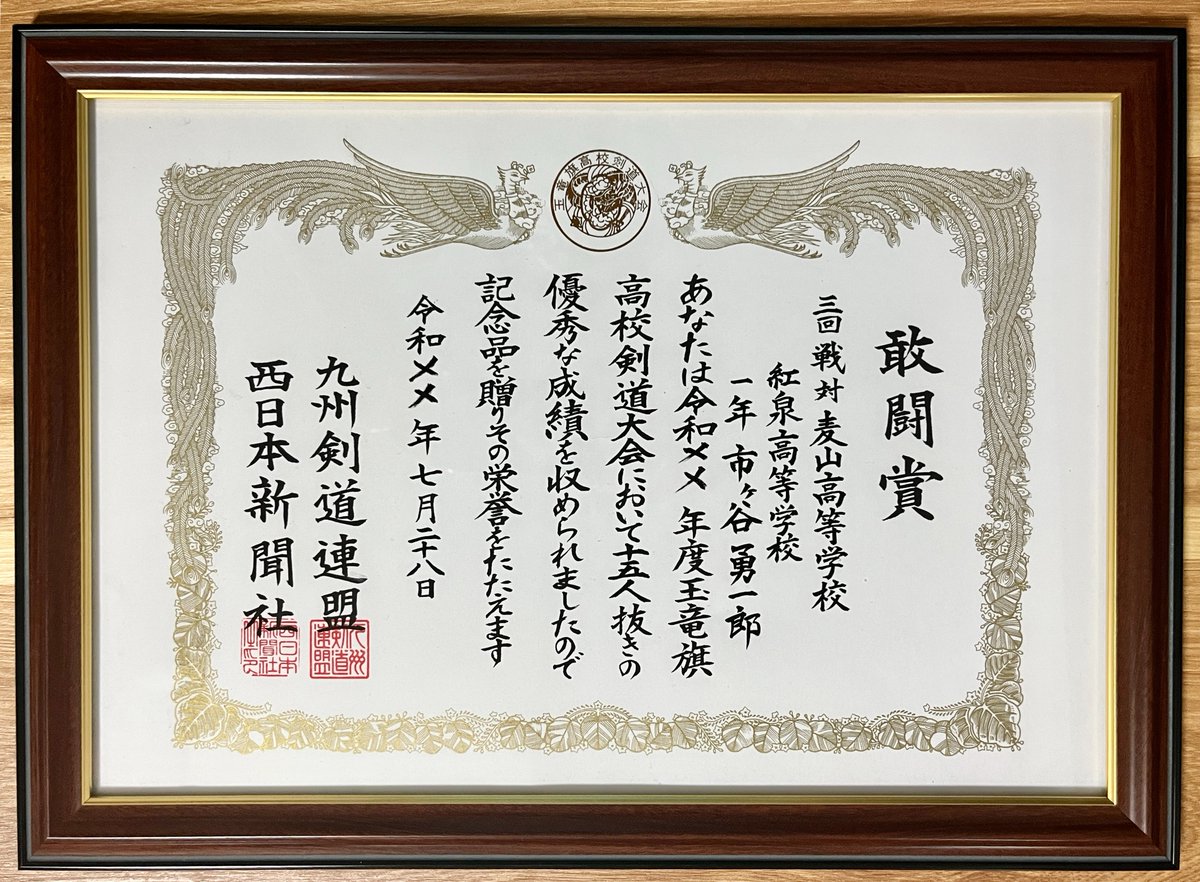 玉竜旗高校剣道大会
敢闘賞
三回戦対麦山高等学校
紅泉高等学校
一年 市ヶ谷勇一郎
あなたは令和〆〆年度玉竜旗
高校剣道大会において十五人抜きの
優秀な成績を収められましたので
記念品を贈りその栄誉をたたえます
令和〆〆年七月二十八日
九州剣道連盟
西日本新聞社